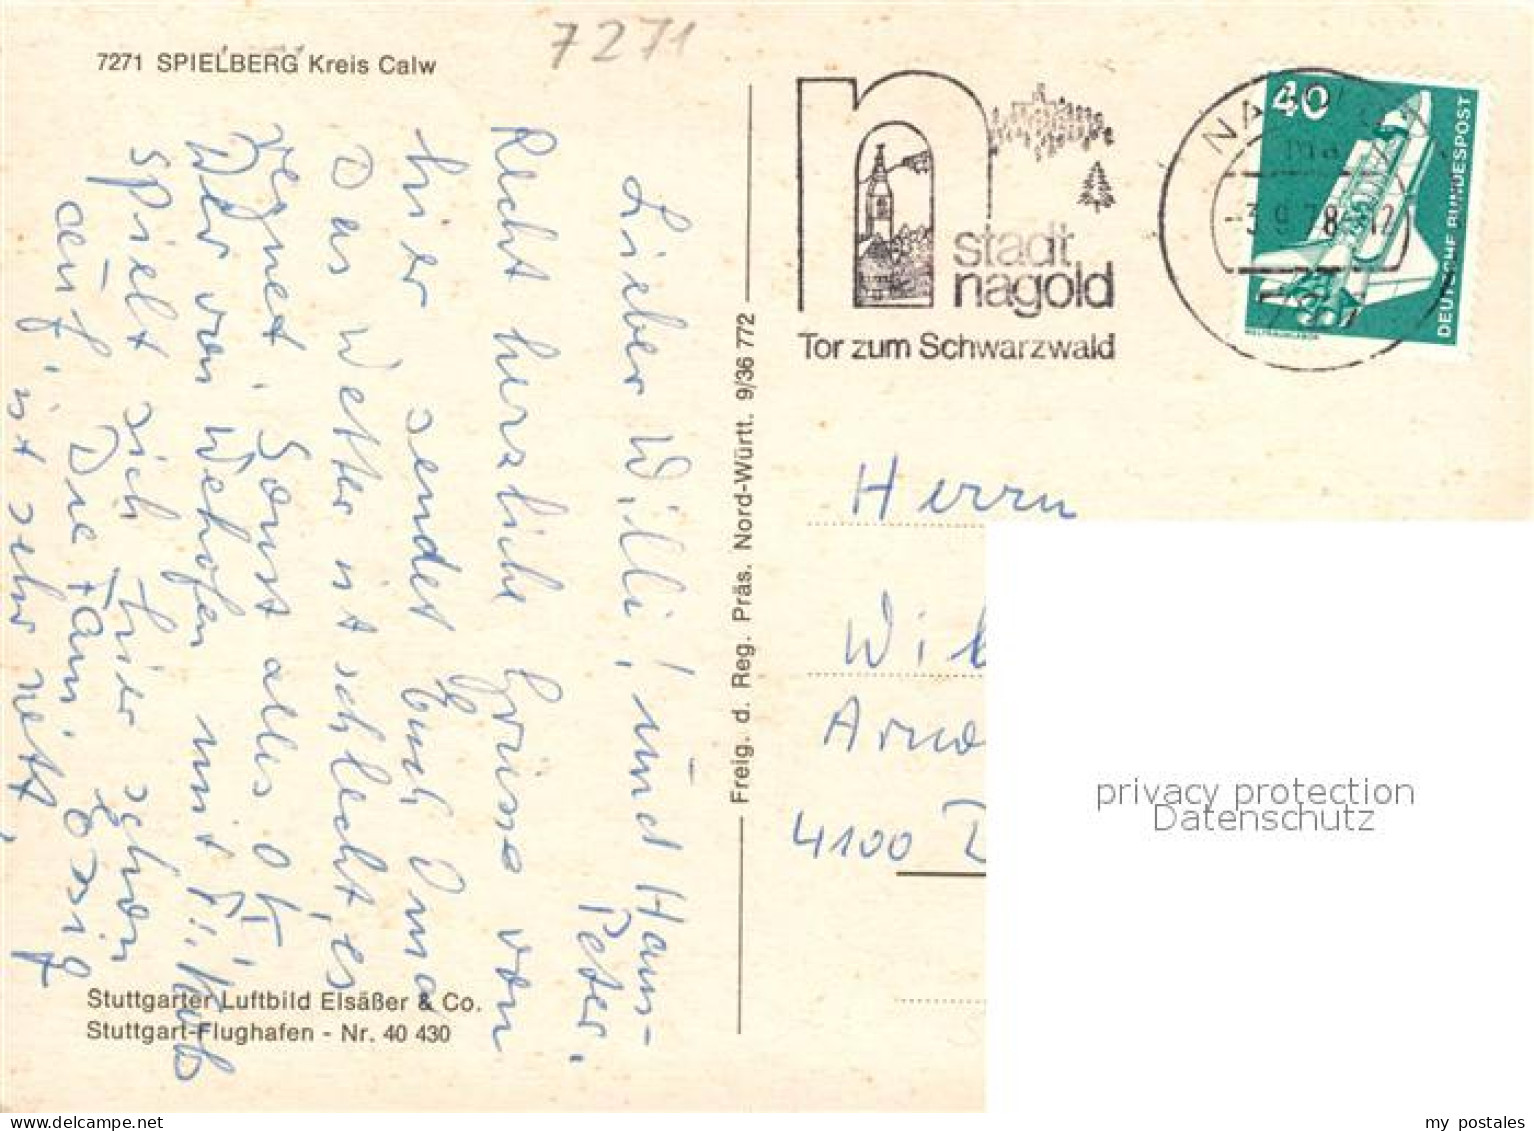 7271
7271 SPIELBERG Kreis Calw
Lieber Willi! und Hans-
Peter.
Recht herzliche Grüsse von
hier sendet Euch Oma
Das Wetter ist schlecht, es
regnet, Sonst alles OK
Der von Wehofen mit
spielt sich hier schon
auf, Die Fam
ist sehr nett,
Stuttgarter Luftbild Elsäßer & Co.
Stuttgart-Flughafen - Nr. 40 430
Freig. d. Reg. Präs. Nord-Württ. 9/36 772
n
stadt
nagold
Tor zum Schwarzwald
-3.9.78-12
40
DEUTSCHE BUNDESPOST
Herrn
Wil
Arno
4100
privacy protection
Datenschutz
my postales